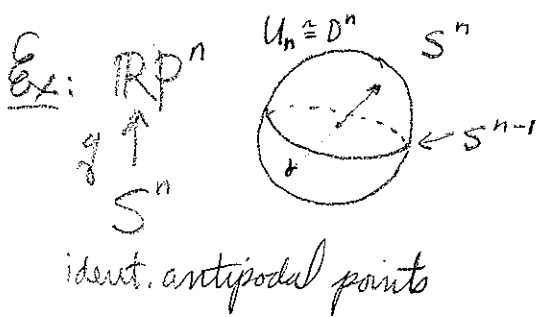 Ex: ℝPⁿ
g ↑
Sⁿ
Uₙ ≅ Dⁿ
Sⁿ
← Sⁿ⁻¹
ident. antipodal points